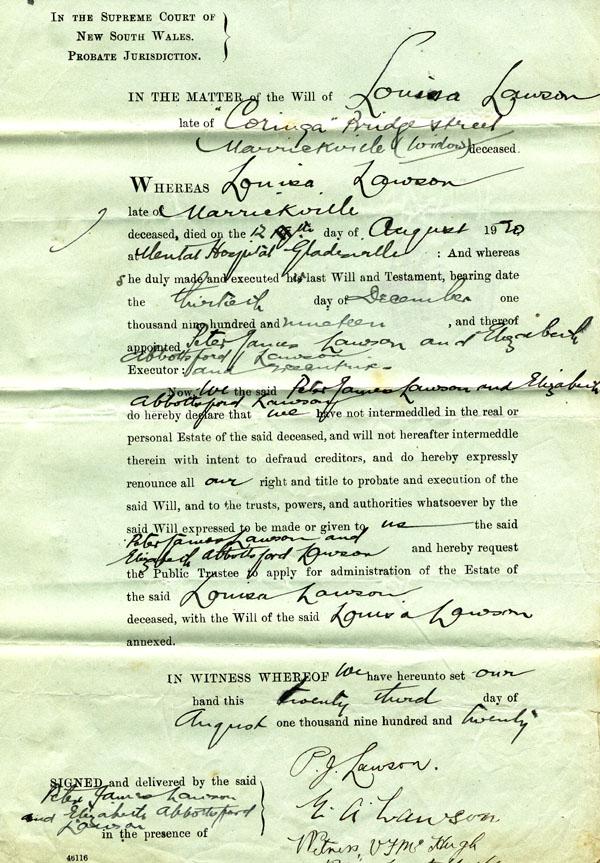 IN THE SUPREME COURT OF
NEW SOUTH WALES.
PROBATE JURISDICTION.
IN THE MATTER of the Will of Louisa Lawson
late of "Coringa" Bridge street
Marrickville (Widow) deceased.
WHEREAS Louisa Lawson
late of Marrickville
deceased, died on the 12th day of August 1920
at Mental Hospital Gladesville : And whereas
she duly made and executed his last Will and Testament, bearing date
the thirtieth day of December one
thousand nine hundred and nineteen , and thereof
appointed Peter James Lawson and Elizabeth
Abbottsford Lawson
Executor and Executrix
Now We the said Peter James Lawson and Elizabeth
Abbottsford Lawson
do hereby declare that we have not intermeddled in the real or
personal Estate of the said deceased, and will not hereafter intermeddle
therein with intent to defraud creditors, and do hereby expressly
renounce all our right and title to probate and execution of the
said Will, and to the trusts, powers, and authorities whatsoever by the
said Will expressed to be made or given to us the said
Peter James Lawson and
Elizabeth Abbottsford Lawson and hereby request
the Public Trustee to apply for administration of the Estate of
the said Louisa Lawson
deceased, with the Will of the said Louisa Lawson
annexed.
IN WITNESS WHEREOF We have hereunto set our
hand this twenty third day of
August one thousand nine hundred and twenty
P. J. Lawson.
E. A. Lawson
SIGNED and delivered by the said
Peter James Lawson
and Elizabeth Abbottsford
Lawson
in the presence of
Witness, V J McHugh
46116